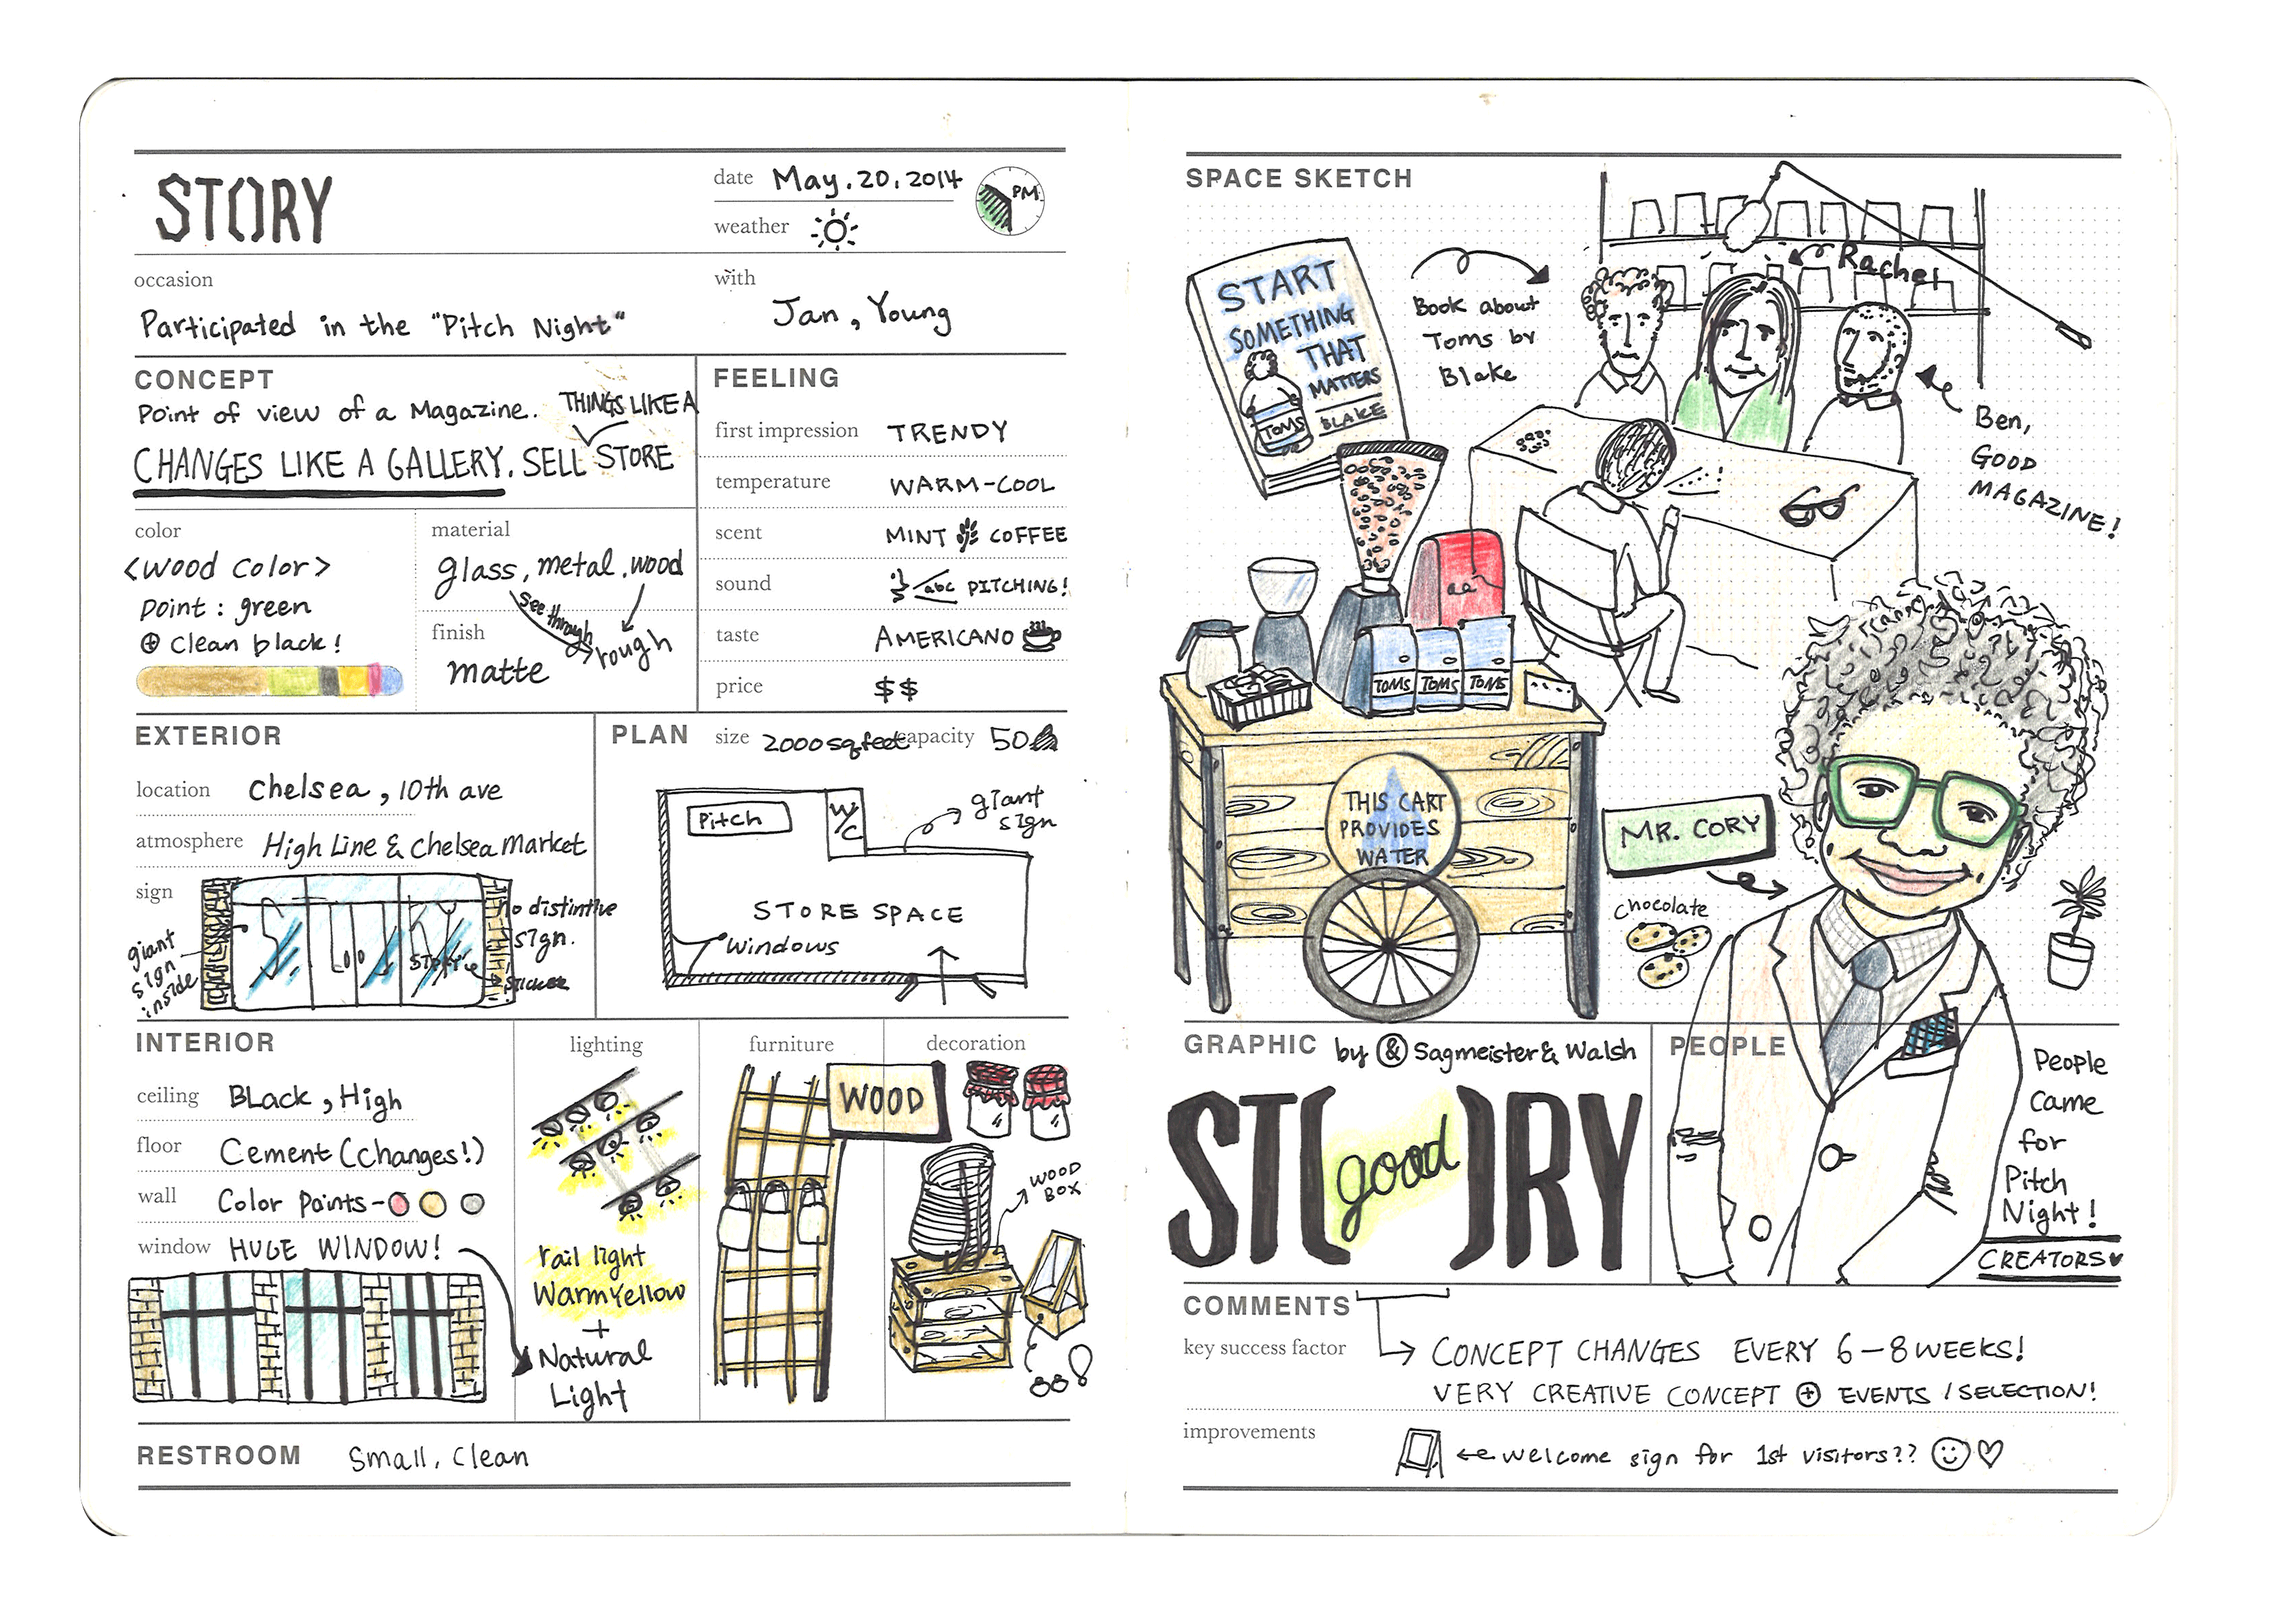 STORY
date May. 20. 2014 PM
weather
occasion
Participated in the "Pitch Night"
with
Jan, Young
CONCEPT
Point of view of a Magazine.
CHANGES LIKE A GALLERY. SELL THINGS LIKE A STORE
color
<wood color>
point : green
⊕ clean black!
material
glass, metal, wood
see through
finish
matte
rough
FEELING
first impression TRENDY
temperature WARM-COOL
scent MINT COFFEE
sound abc PITCHING!
taste AMERICANO
price $$
EXTERIOR
location Chelsea, 10th ave
atmosphere High Line & Chelsea Market
sign
giant
sign
inside
STORY
No distintive
sign.
sticker
PLAN size 2000sq feet capacity 50
Pitch
W/C
giant
sign
STORE SPACE
Windows
INTERIOR
ceiling Black, High
floor Cement (changes!)
wall Color points-
window HUGE WINDOW!
lighting
rail light
Warm Yellow
+
Natural
Light
furniture
WOOD
decoration
WOOD
BOX
RESTROOM Small, Clean
SPACE SKETCH
START
SOMETHING
THAT
MATTERS
BLAKE
TOMS
Book about
Toms by
Blake
Rachel
Ben,
GOOD
MAGAZINE!
TOMS TOMS TOMS
THIS CART
PROVIDES
WATER
MR. CORY
chocolate
GRAPHIC by & Sagmeister & Walsh
ST( good )RY
PEOPLE
People
Came
for
Pitch
Night!
CREATORS
COMMENTS
key success factor CONCEPT CHANGES EVERY 6-8 WEEKS!
VERY CREATIVE CONCEPT ⊕ EVENTS / SELECTION!
improvements welcome sign for 1st visitors??